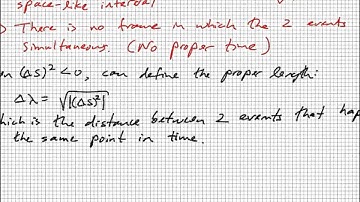 space-like interval
There is no frame in which the 2 events
simultaneous. (No proper time)
(Δs)² < 0, can define the proper length:
Δλ = √|(Δs)²|
which is the distance between 2 events that hap
the same point in time.